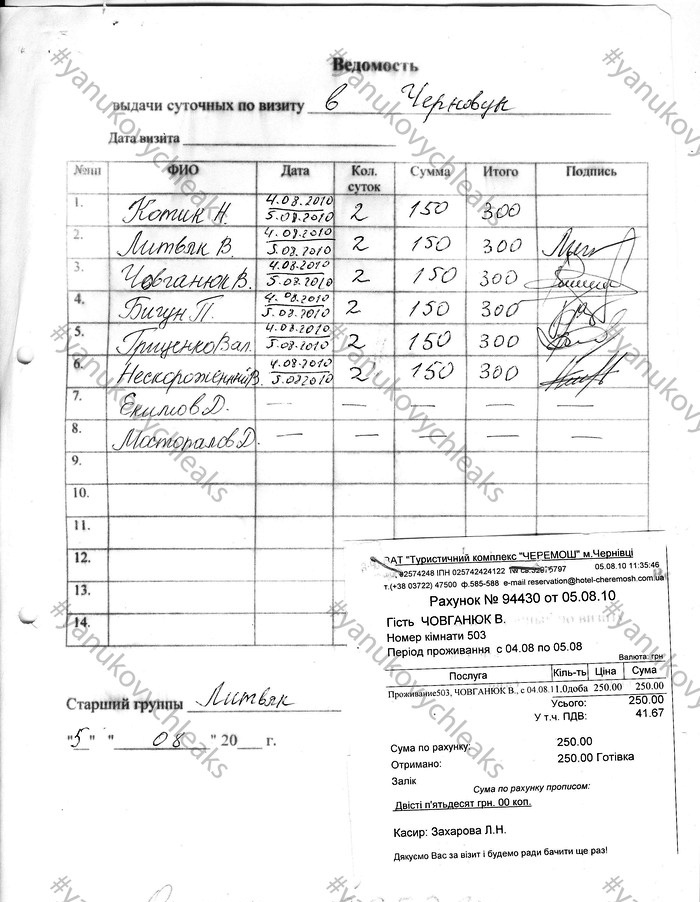 Ведомость
выдачи суточных по визиту в Черновцы
Дата визита
№пп ФИО Дата Кол. суток Сумма Итого Подпись
1. Котик Н. 4.08.2010 5.08.2010 2 150 300
2. Литвяк В. 4.08.2010 5.08.2010 2 150 300
3. Човганюк В. 4.08.2010 5.08.2010 2 150 300
4. Бигун П. 4.08.2010 5.08.2010 2 150 300
5. Гриценко Вал. 4.08.2010 5.08.2010 2 150 300
6. Нескороженный В. 4.08.2010 5.08.2010 2 150 300
7. Екимов Д. — — — —
8. Мосторалов Д. — — — — —
9.
10.
11.
12.
13.
14.
Старший группы Литвяк
"5" " 08 " 20 г.
ВАТ "Туристичний комплекс "ЧЕРЕМОШ" м.Чернівці
02574248 ІПН 025742424122 05.08.10 11:35:46
т.(+38 03722) 47500 ф.585-588 e-mail reservation@hotel-cheremosh.com.ua
Рахунок № 94430 от 05.08.10
Гість ЧОВГАНЮК В.
Номер кімнати 503
Період проживання с 04.08 по 05.08
Валюта: грн
Послуга Кіль-ть Ціна Сума
Проживание503, ЧОВГАНЮК В., с 04.08.1 1.0доба 250.00 250.00
Усього: 250.00
У т.ч. ПДВ: 41.67
Сума по рахунку: 250.00
Отримано: 250.00 Готівка
Залік
Сума по рахунку прописом:
Двісті п'ятьдесят грн. 00 коп.
Касир: Захарова Л.Н.
Дякуємо Вас за візит і будемо ради бачити ще раз!
#yanukovychleaks
#yanukovychleaks
#yanukovychleaks
#yanukovychleaks
#yanukovychleaks
#yanukovychleaks
#yanukovychleaks
#yanukovychleaks
#yanukovychleaks